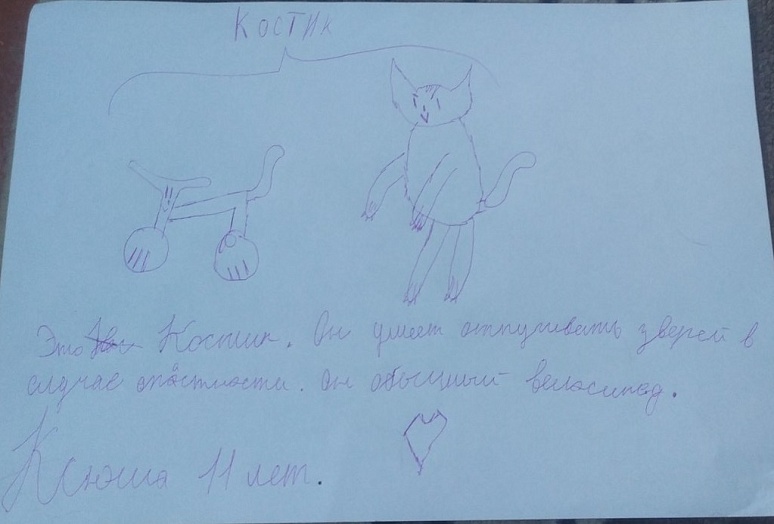 КОСТИК
Это Костик. Он умеет отпугивать зверей в
случае опастности. Он обычный велосипед.
Ксюша 11 лет.